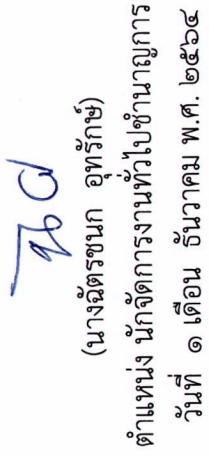 (นางฉัตรชนก อุทรักษ์)
ตำแหน่ง นักจัดการงานทั่วไปชำนาญการ
วันที่ ๑ เดือน ธันวาคม พ.ศ. ๒๕๖๔